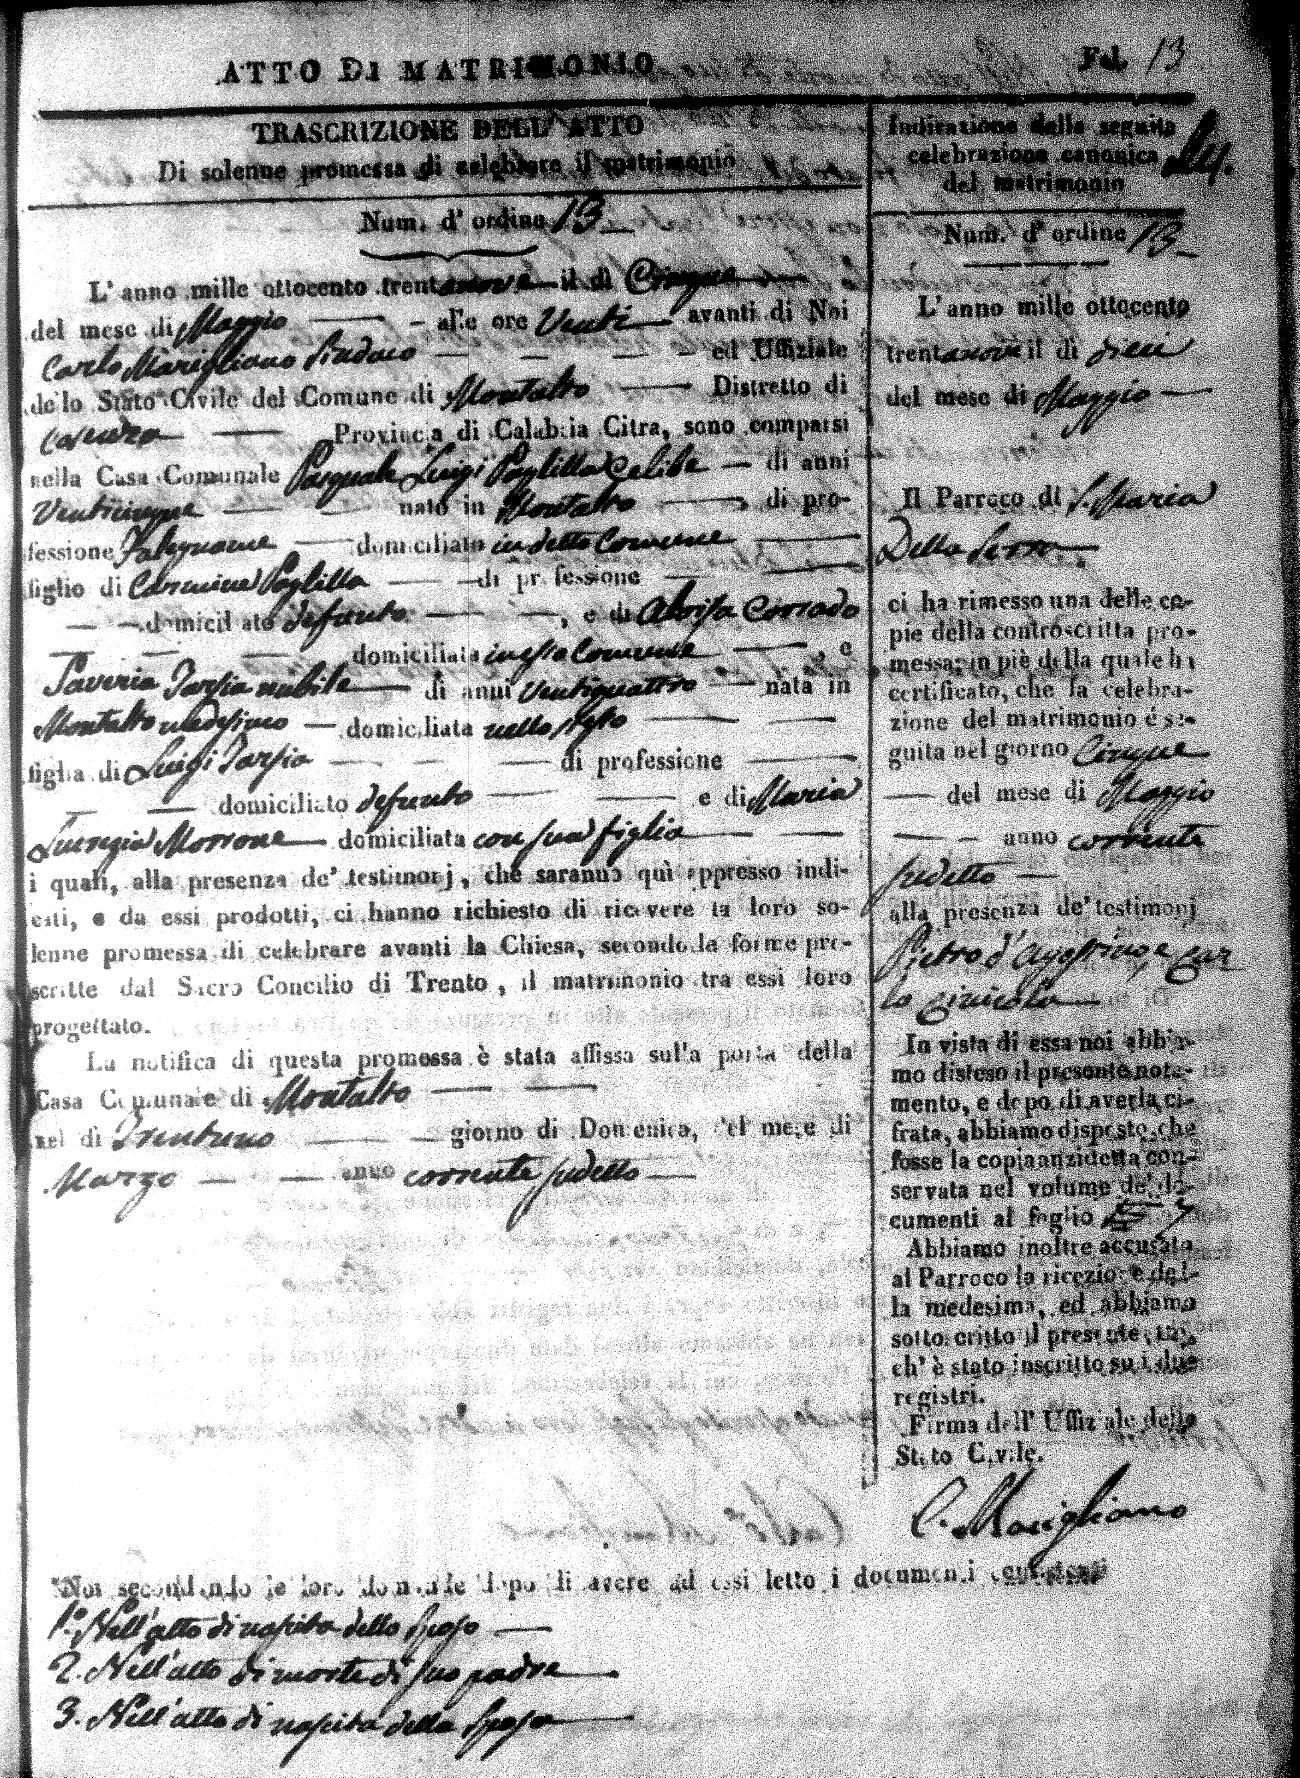 ATTO DI MATRIMONIO
Fol. 13
TRASCRIZIONE DELL' ATTO
Di solenne promessa di celebrare il matrimonio
Num. d' ordine 13
L' anno mille ottocento trentanove il di Cinque
del mese di Maggio alle ore Venti avanti di Noi
Carlo Marigliano Sindaco ed Uffiziale
dello Stato Civile del Comune di Montalto Distretto di
Cosenza Provincia di Calabria Citra, sono comparsi
nella Casa Comunale Pasquale Luigi Paglilla Celibe di anni
Venticinque nato in Montalto di pro-
fessione Falegname domiciliato in detto Comune
figlio di Carmine Paglilla di professione
domiciliato defunto, e di Corrado
domiciliata in Comune, e
Saveria Tarsia nubile di anni Ventiquattro nata in
Montalto medesimo domiciliata nello stesso
figlia di Luigi Tarsia di professione
domiciliato defunto e di Maria
Morrone domiciliata con sua figlia
i quali, alla presenza de' testimonj, che saranno quì appresso indi-
cati, e da essi prodotti, ci hanno richiesto di ricevere la loro so-
lenne promessa di celebrare avanti la Chiesa, secondo le forme pre-
scritte dal Sacro Concilio di Trento, il matrimonio tra essi loro
progettato.
La notifica di questa promessa è stata affissa sulla porta della
Casa Comunale di Montalto
nel di Trentuno giorno di Domenica, del mese di
Marzo anno corrente sudetto
Noi secondando le loro domande dopo di avere ad essi letto i documenti
1.° Nell'atto di nascita dello Sposo
2. Nell'atto di morte di suo padre
3. Nell'atto di nascita della Sposa
Indicazione della seguita
celebrazione canonica
del matrimonio
Num. d' ordine 13
L' anno mille ottocento
trentanove il di dieci
del mese di Maggio
Il Parroco di S. Maria
Della Serra
ci ha rimesso una delle co-
pie della controscritta pro-
messa; in piè della quale ha
certificato, che la celebra-
zione del matrimonio é se-
guita nel giorno Cinque
del mese di Maggio
anno corrente
sudetto
alla presenza de' testimonj
Pietro d'Agostino, e Car
lo
In vista di essa noi abbia-
mo disteso il presente nota-
mento, e dopo di averla ci-
frata, abbiamo disposto, che
fosse la copia anzidetta con-
servata nel volume de' do-
cumenti al foglio
Abbiamo inoltre accusata
al Parroco la ricezione del-
la medesima, ed abbiamo
sottoscritto il presente,
ch' è stato inscritto su i due
registri.
Firma dell' Uffiziale dello
Stato Civile.
C. Marigliano